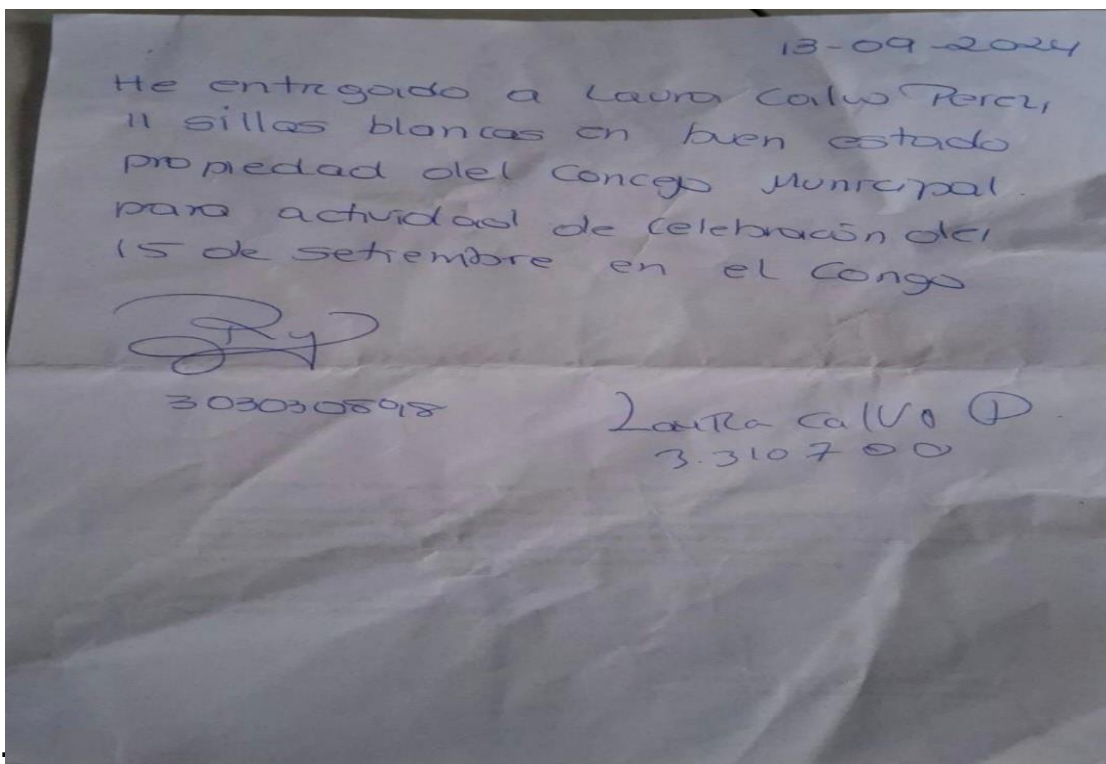 13-09-2024
He entregado a Laura Calvo Perez,
11 sillas blancas en buen estado
propiedad del Concejo Municipal.
para actividad de celebración del
15 de setiembre en el Congo
303030898
Laura Calvo P.
3.310700